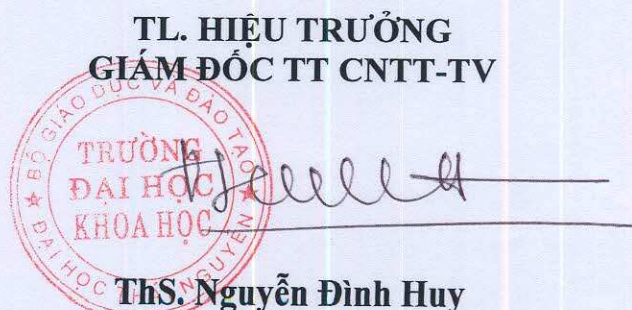 TL. HIỆU TRƯỞNG
GIÁM ĐỐC TT CNTT-TV
BỘ GIÁO DỤC VÀ ĐÀO TẠO
TRƯỜNG
ĐẠI HỌC
KHOA HỌC
ĐẠI HỌC THÁI NGUYÊN
ThS. Nguyễn Đình Huy